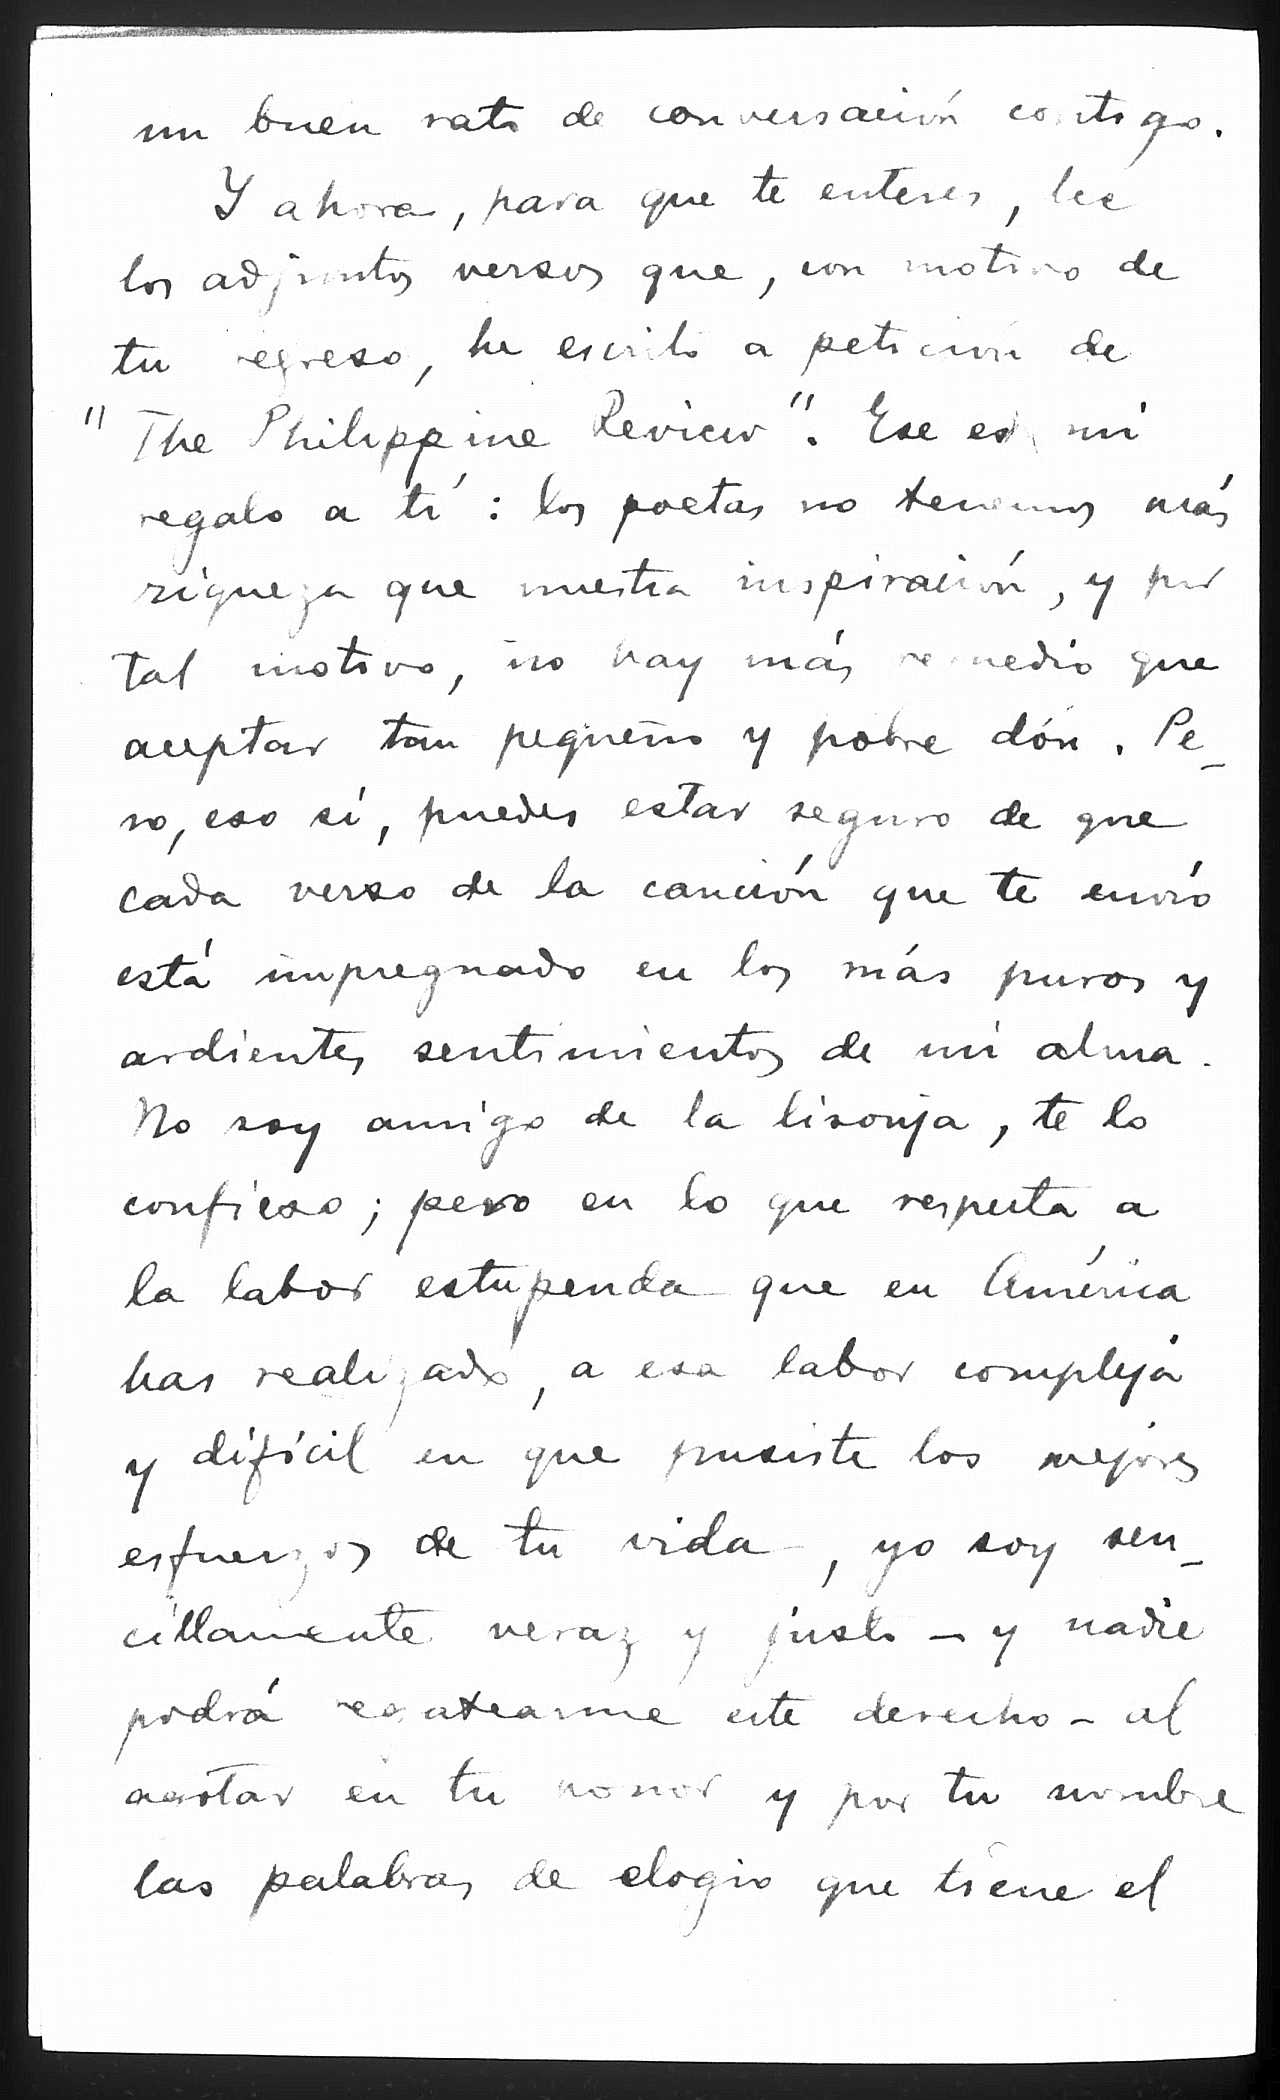 un buen rato de conversación contigo.
Y ahora, para que te enteres, lee
los adjuntos versos que, con motivo de
tu regreso, he escrito a petición de
"The Philippine Review". Ese es mi
regalo a tí: los poetas no tenemos más
riqueza que nuestra inspiración, y por
tal motivo, no hay más remedio que
aceptar tan pequeño y pobre dón. Pe-
ro, eso sí, puedes estar seguro de que
cada verso de la canción que te envío
está impregnado en los más puros y
ardientes sentimientos de mi alma.
No soy amigo de la lisonja, te lo
confieso; pero en lo que respecta a
la labor estupenda que en América
has realizado, a esa labor compleja
y difícil en que pusiste los mejores
esfuerzos de tu vida, yo soy sen-
cillamente veraz y justo - y nadie
podrá regatearme este derecho - al
agotar en tu honor y por tu nombre
las palabras de elogio que tiene el